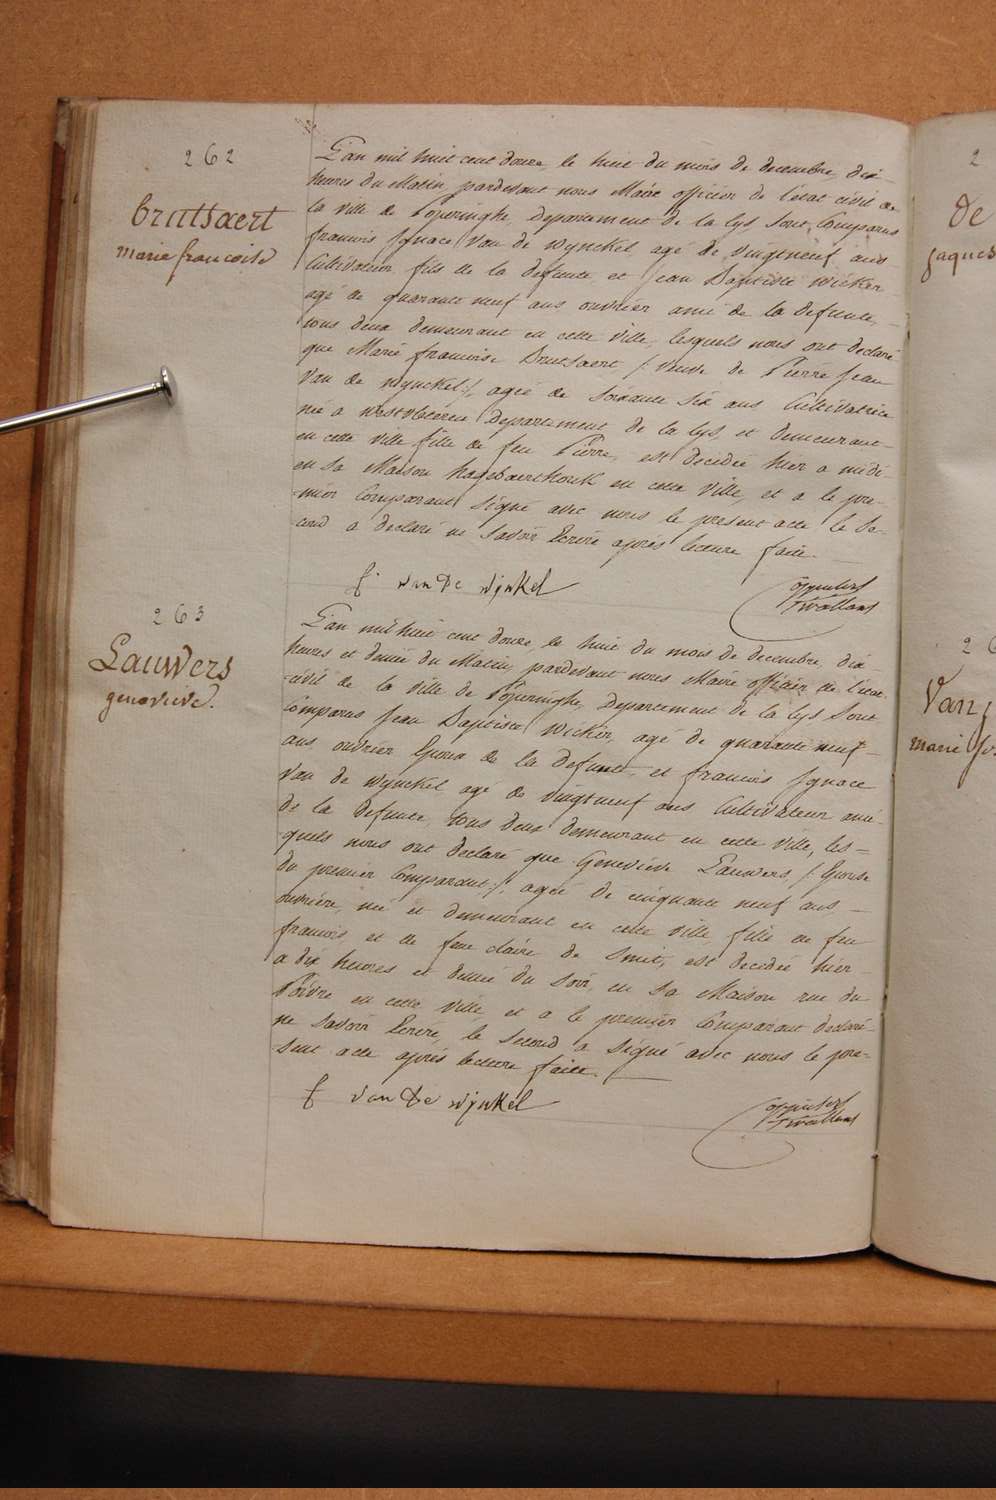 262
bruttsaert
marie francoise
L'an mil huit cent douze, le huit du mois de decembre, dix
heures du Matin, pardevant nous Maire officier de l'etat civil de
la ville de Poperinghe, departement de la lys, sont Comparus
francois Ignace Van de Wynckel agé de vingtneuf ans
Cultivateur fils de la defunte et Jean Baptiste Wicker
agé de quarante neuf ans ouvrier ami de la defunte,
tous deux demeurant en cette ville, lesquels nous ont declaré
que Marie francoise Bruttsaert /: veuve de Pierre Jean
Van de Wynckel :/, agée de soixante six ans Cultivatrice
née a westvleteren departement de la lys, et demeurant
en cette ville fille de feu Pierre, est decedée hier a midi
en sa Maison hagebaerthouk en cette ville, et a le pre-
mier Comparant signé avec nous le present acte le se-
cond a declaré ne savoir Ecrire après lecture faite.
f. van de wynkel
263
Lauwers
genevieve.
L'an mil huit cent douze, le huit du mois de decembre, dix
heures et demie du Matin, pardevant nous Maire officier de l'etat
civil de la ville de Poperinghe, departement de la lys sont
Comparus Jean Baptiste Wickir, agé de quarante neuf
ans, ouvrier Epoux de la defunte, et francois Ignace
Van de Wynckel agé de vingtneuf ans Cultivateur ami
de la defunte, tous deux demeurant en cette ville, les=
quels nous ont declaré que Genevieve Lauwers, /: Epouse
du premier Comparant :/, agée de cinquante neuf ans
ouvrière, née et demeurant en cette ville fille de feu
francois, et de feue claire de Smit, est decedée hier
a dix heures et demie du soir, en sa Maison rue du
Poivre en cette ville, et a le premier Comparant declaré
ne savoir Ecrire, le second a signé avec nous le pre-
sent acte après lecture faite.
f van de wynkel
2
de
jaques
26
Van
marie